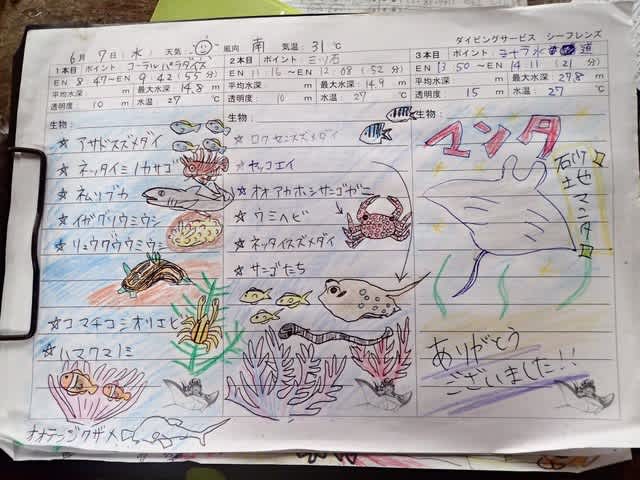 ダイビングサービス シーフレンズ
6月 9日(水) 天気: 風向 南 気温: 31℃
1本目 ポイント: コーラルパラダイス
EN 8 47〜EN 9 42 (55分)
平均水深: m 最大水深 14.8 m
透明度: 10 m 水温: 27 ℃
生物:
☆ アサドスズメダイ
☆ ネッタイミノカサゴ
☆ ネムリブカ
☆ イガグリウミウシ
☆ リュウグウウミウシ
☆ コマチコシオリエビ
☆ ハマクマノミ
オオテンジクザメ
2本目 ポイント: 三ツ石
EN 11 16〜EN 12 08 (52分)
平均水深: m 最大水深: 14.9 m
透明度: 10 m 水温: 27 ℃
生物:
☆ ロクセンスズメダイ
☆ ヤッコエイ
☆ オオアカホシサンゴガニ
☆ ウミヘビ
☆ ネッタイスズメダイ
☆ サンゴたち
3本目 ポイント: ヨナラ水道
EN 13 50〜EN 14 11 (21分)
平均水深: m 最大水深: 27.8 m
透明度: 15 m 水温: 27 ℃
生物:
マンタ
石垣土也マンタ
ありがとう
ございました!!